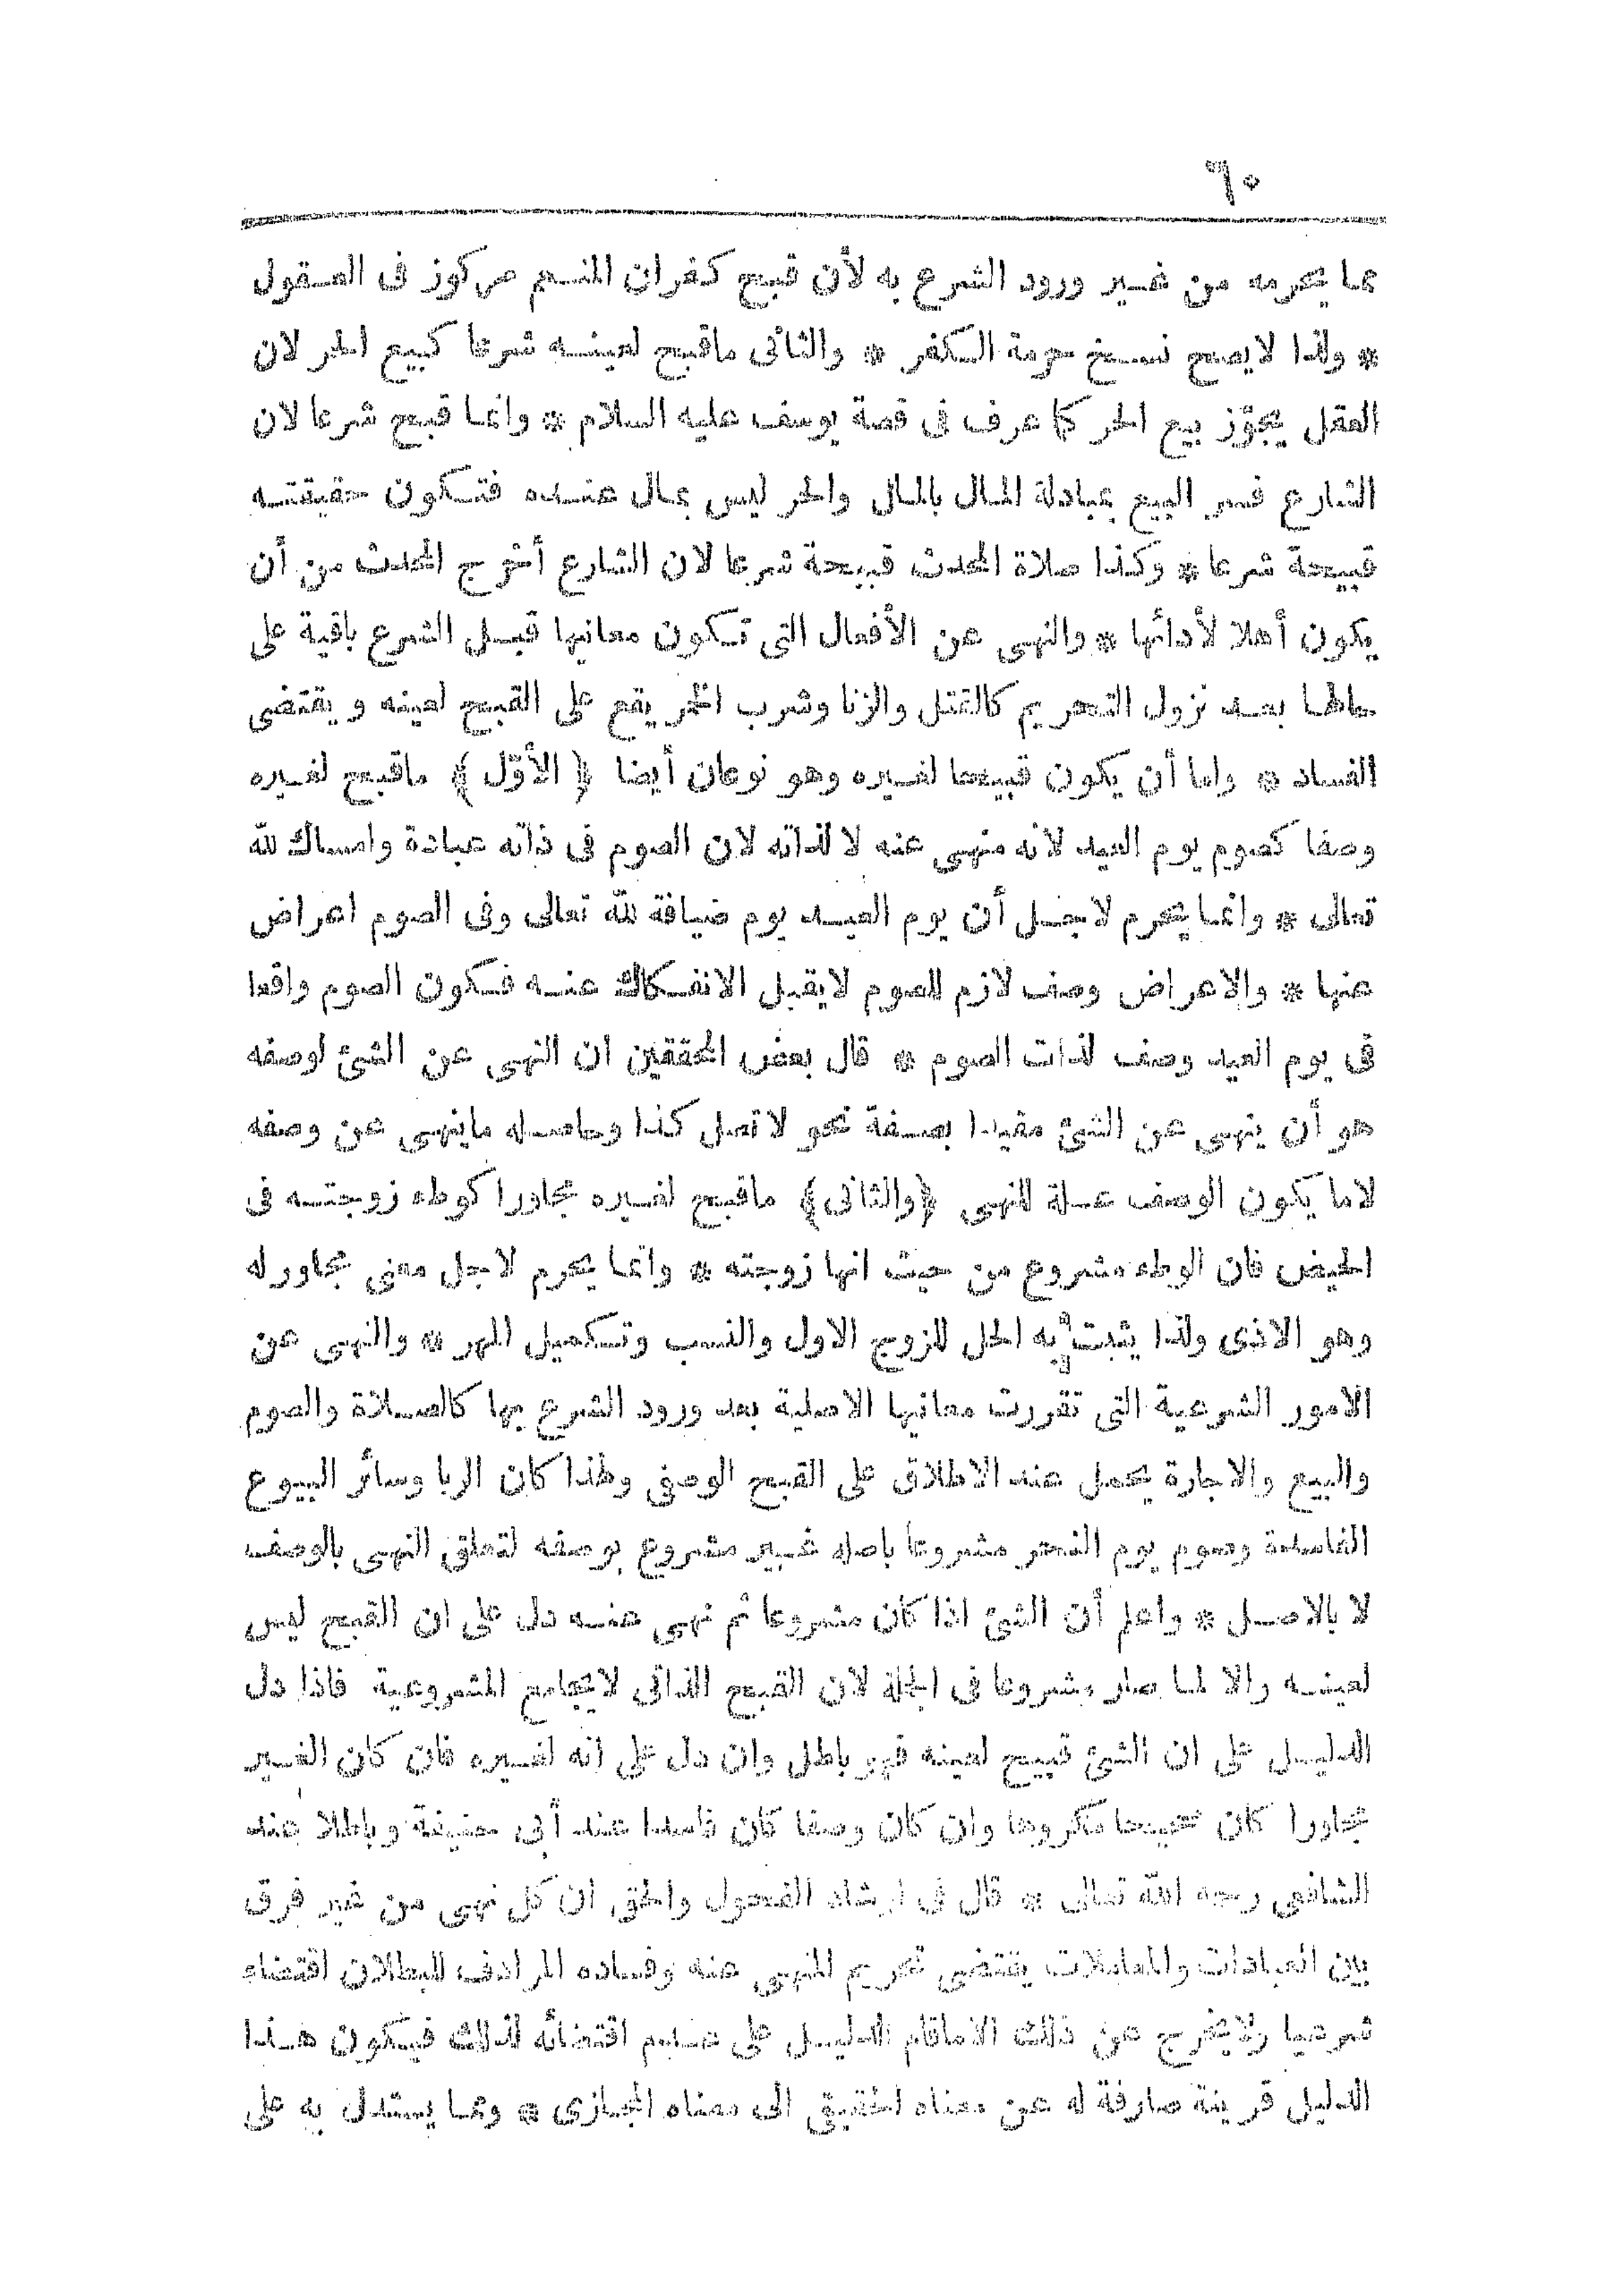 ٦٠
مما يحرمه من غير ورود الشرع به لأن قبح كفران المنعم مركوز فى العقول
* ولذا لايصح نسخ حرمة الكفر * والثانى ماقبح لعينه شرعا كبيع الحر لان
العقل يجوّز بيع الحر كما عرف فى قصة يوسف عليه السلام * وانما قبح شرعا لان
الشارع فسر البيع بمبادلة المال بالمال والحر ليس بمال عنده فتكون حقيقته
قبيحة شرعا * وكذا صلاة المحدث قبيحة شرعا لان الشارع أخرج المحدث من أن
يكون أهلا لأدائها * والنهى عن الأفعال التى تكون معانيها قبل الشرع باقية على
حالها بعد نزول التحريم كالقتل والزنا وشرب الخمر يقع على القبح لعينه ويقتضى
الفساد * واما أن يكون قبيحا لغيره وهو نوعان أيضا ﴿ الأوّل ﴾ ماقبح لغيره
وصفا كصوم يوم العيد لانه منهى عنه لا لذاته لان الصوم فى ذاته عبادة وامساك لله
تعالى * وانما يحرم لاجل أن يوم العيد يوم ضيافة لله تعالى وفى الصوم اعراض
عنها * والاعراض وصف لازم للصوم لايقبل الانفكاك عنه فكون الصوم واقعا
فى يوم العيد وصف لذات الصوم * قال بعض المحققين ان النهى عن الشئ لوصفه
هو أن ينهى عن الشئ مقيدا بصفة نحو لا تصل كذا وحاصله ماينهى عن وصفه
لا ما يكون الوصف علة للنهى ﴿والثانى﴾ ماقبح لغيره مجاورا كوطء زوجته فى
الحيض فان الوطء مشروع من حيث انها زوجته * وانما يحرم لاجل معنى مجاور له
وهو الاذى ولذا يثبت به الحل للزوج الاول والنسب وتكميل المهر * والنهى عن
الامور الشرعية التى تقررت معانيها الاصلية بعد ورود الشرع بها كالصلاة والصوم
والبيع والاجارة يحمل عند الاطلاق على القبح الوصفى ولهذا كان الربا وسائر البيوع
الفاسدة وصوم يوم النحر مشروعا باصله غير مشروع بوصفه لتعلق النهى بالوصف
لا بالاصل * واعلم أن الشئ اذا كان مشروعا ثم نهى عنه دل على ان القبح ليس
لعينه والا لما صار مشروعا فى الجملة لان القبح الذاتى لايجامع المشروعية فاذا دل
الدليل على ان الشئ قبيح لعينه فهو باطل وان دل على انه لغيره فان كان الغير
مجاورا كان صحيحا مكروها وان كان وصفا كان فاسدا عند أبى حنيفة وباطلا عند
الشافعى رحمه الله تعالى * قال فى ارشاد الفحول والحق ان كل نهى من غير فرق
بين العبادات والمعاملات يقتضى تحريم المنهى عنه وفساده المرادف للبطلان اقتضاء
شرعيا ولايخرج عن ذلك الا ماقام الدليل على عدم اقتضائه لذلك فيكون هذا
الدليل قرينة صارفة له عن معناه الحقيقى الى معناه المجازى * ومما يستدل به على